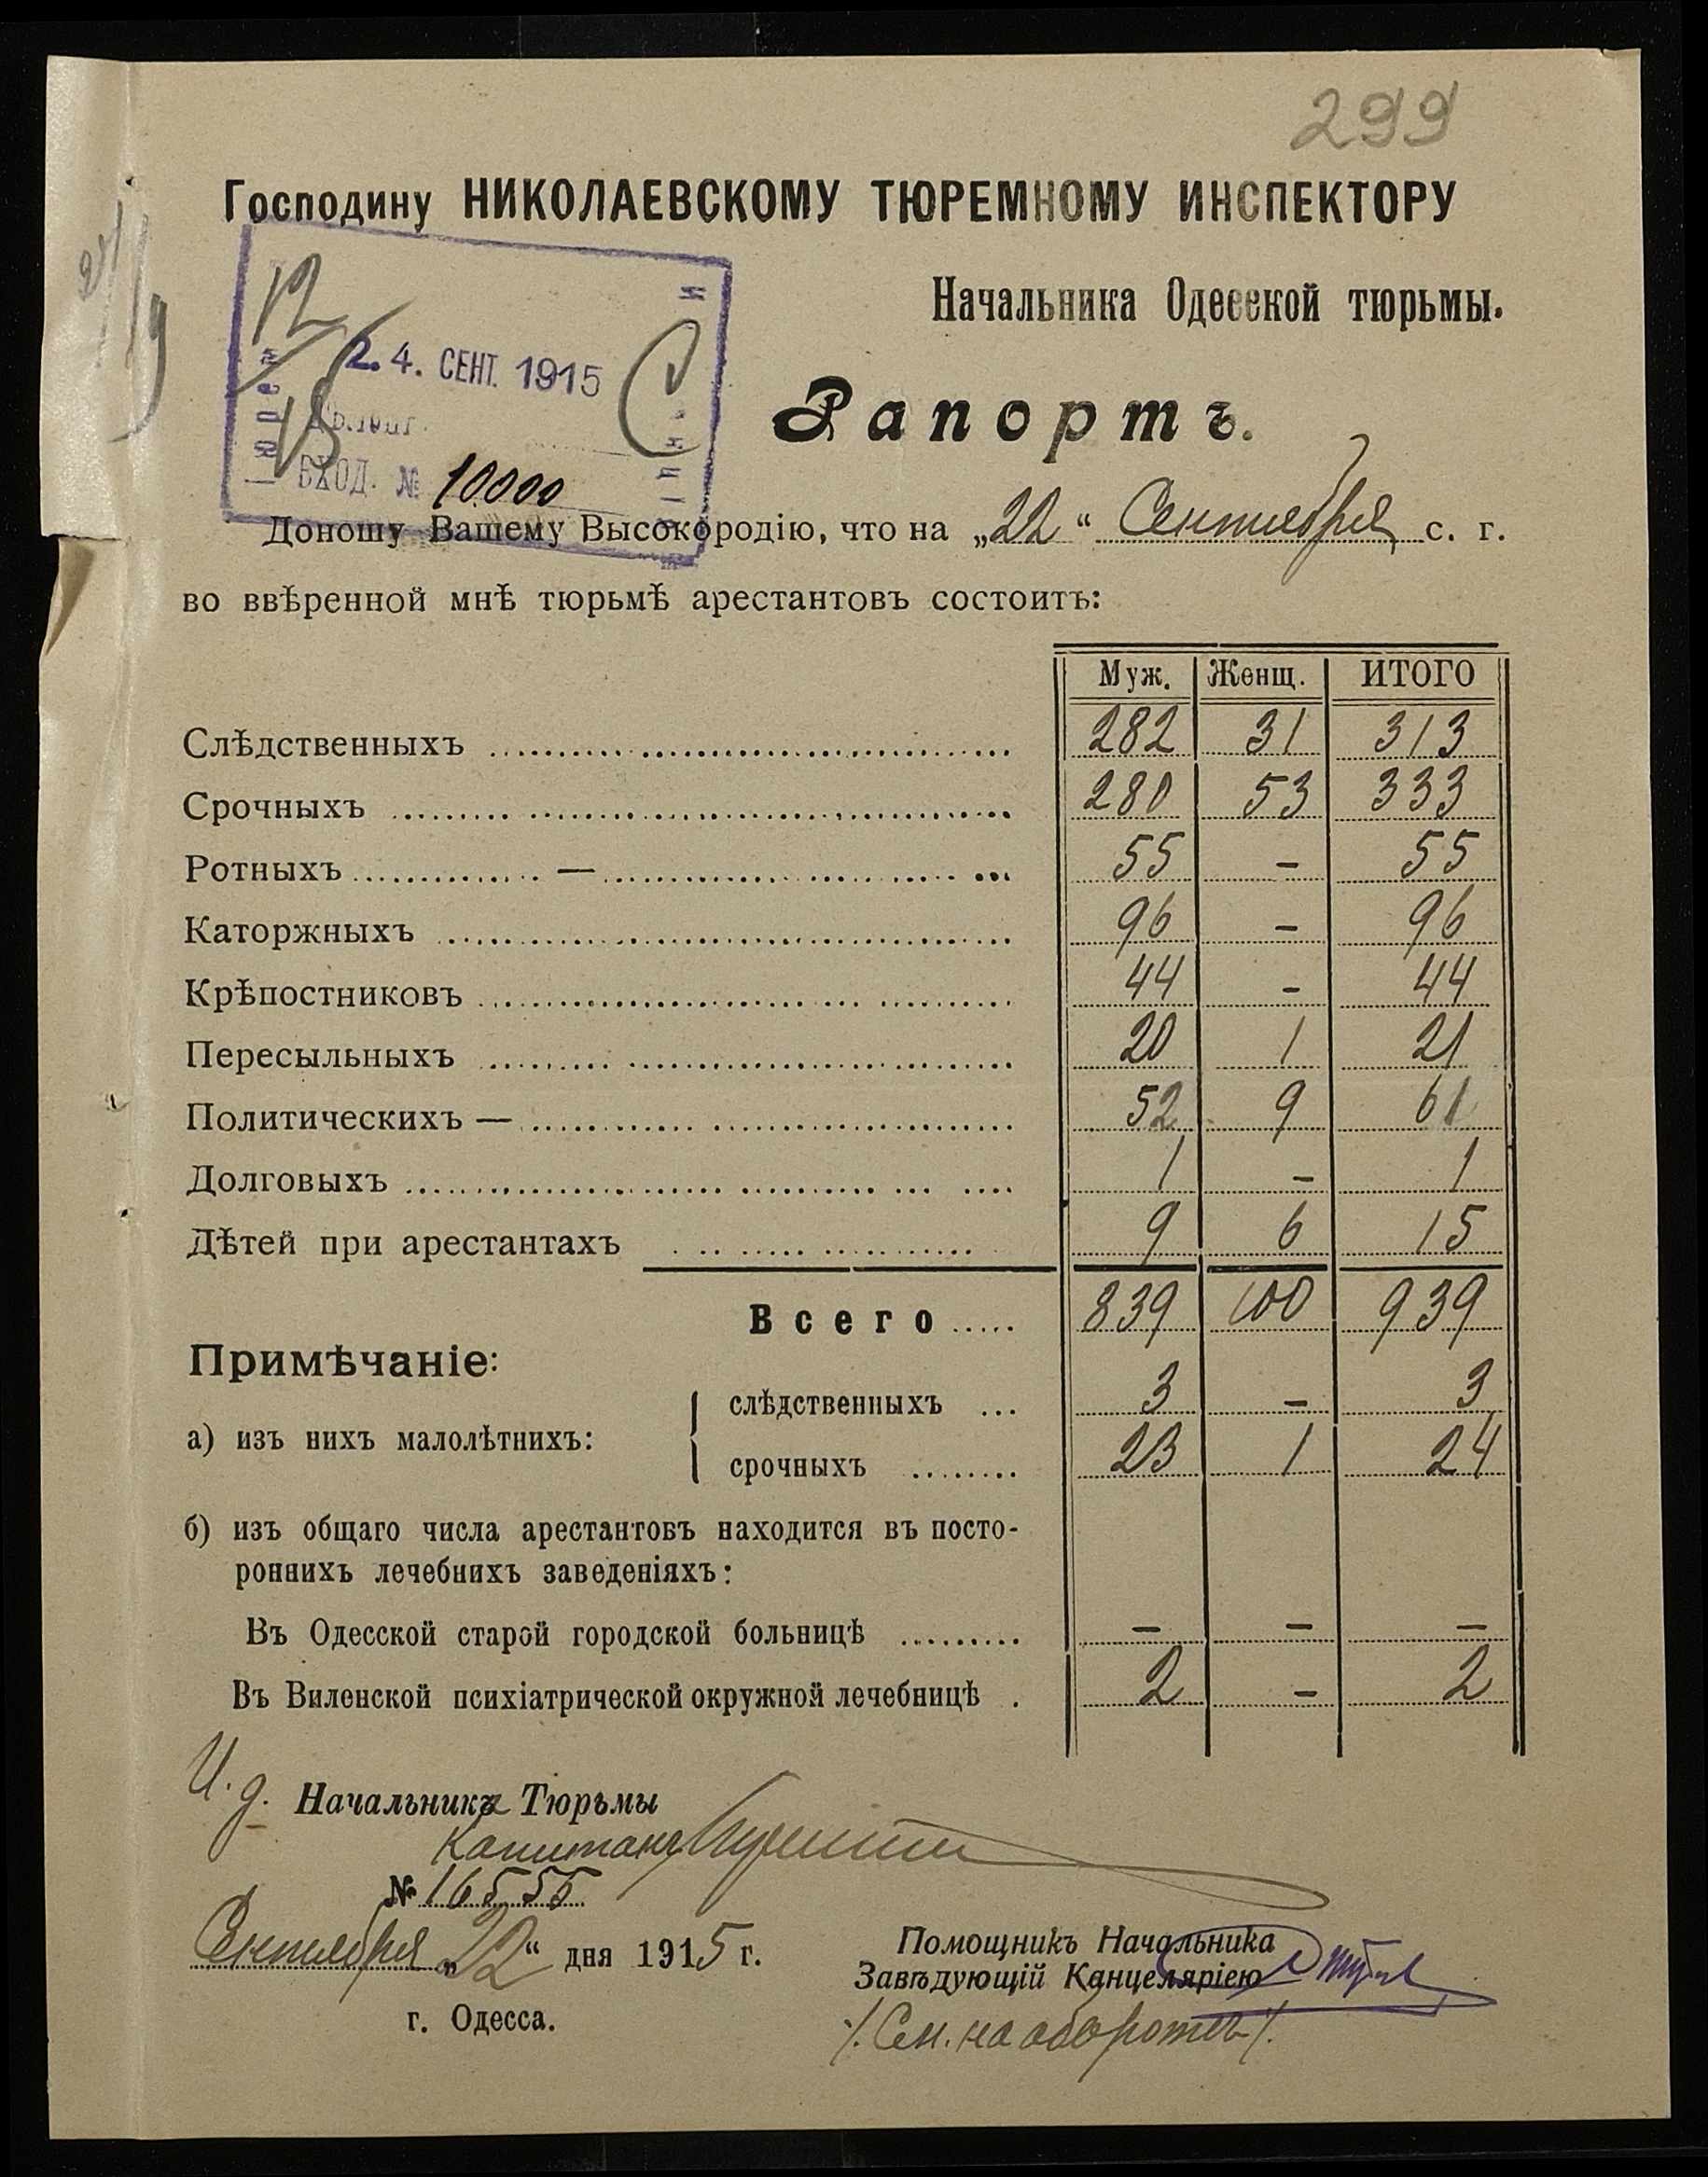 299
Господину НИКОЛАЕВСКОМУ ТЮРЕМНОМУ ИНСПЕКТОРУ
Начальника Одесской тюрьмы.
24. СЕНТ. 1915
Рапортъ.
ВХОД. № 10000
Доношу Вашему Высокородію, что на „22“ Сентября с. г.
во ввѣренной мнѣ тюрьмѣ арестантовъ состоитъ:
Муж. Женщ. ИТОГО
Слѣдственныхъ 282 31 313
Срочныхъ 280 53 333
Ротныхъ — 55 - 55
Каторжныхъ 96 - 96
Крѣпостниковъ 44 - 44
Пересыльныхъ 20 1 21
Политическихъ — 52 9 61
Долговыхъ 1 - 1
Дѣтей при арестантахъ 9 6 15
Всего 839 100 939
Примѣчаніе:
слѣдственныхъ 3 - 3
а) изъ нихъ малолѣтнихъ:
срочныхъ 23 1 24
б) изъ общаго числа арестантовъ находится въ посто-
роннихъ лечебнихъ заведеніяхъ:
Въ Одесской старой городской больницѣ - - -
Въ Виленской психіатрической окружной лечебницѣ 2 - 2
И. д. Начальника Тюрьмы
Капитанъ
№ 16555
Сентября „22“ дня 1915 г.
Помощникъ Начальника
Завѣдующій Канцеляріею
г. Одесса.
/. См. на оборотѣ /.